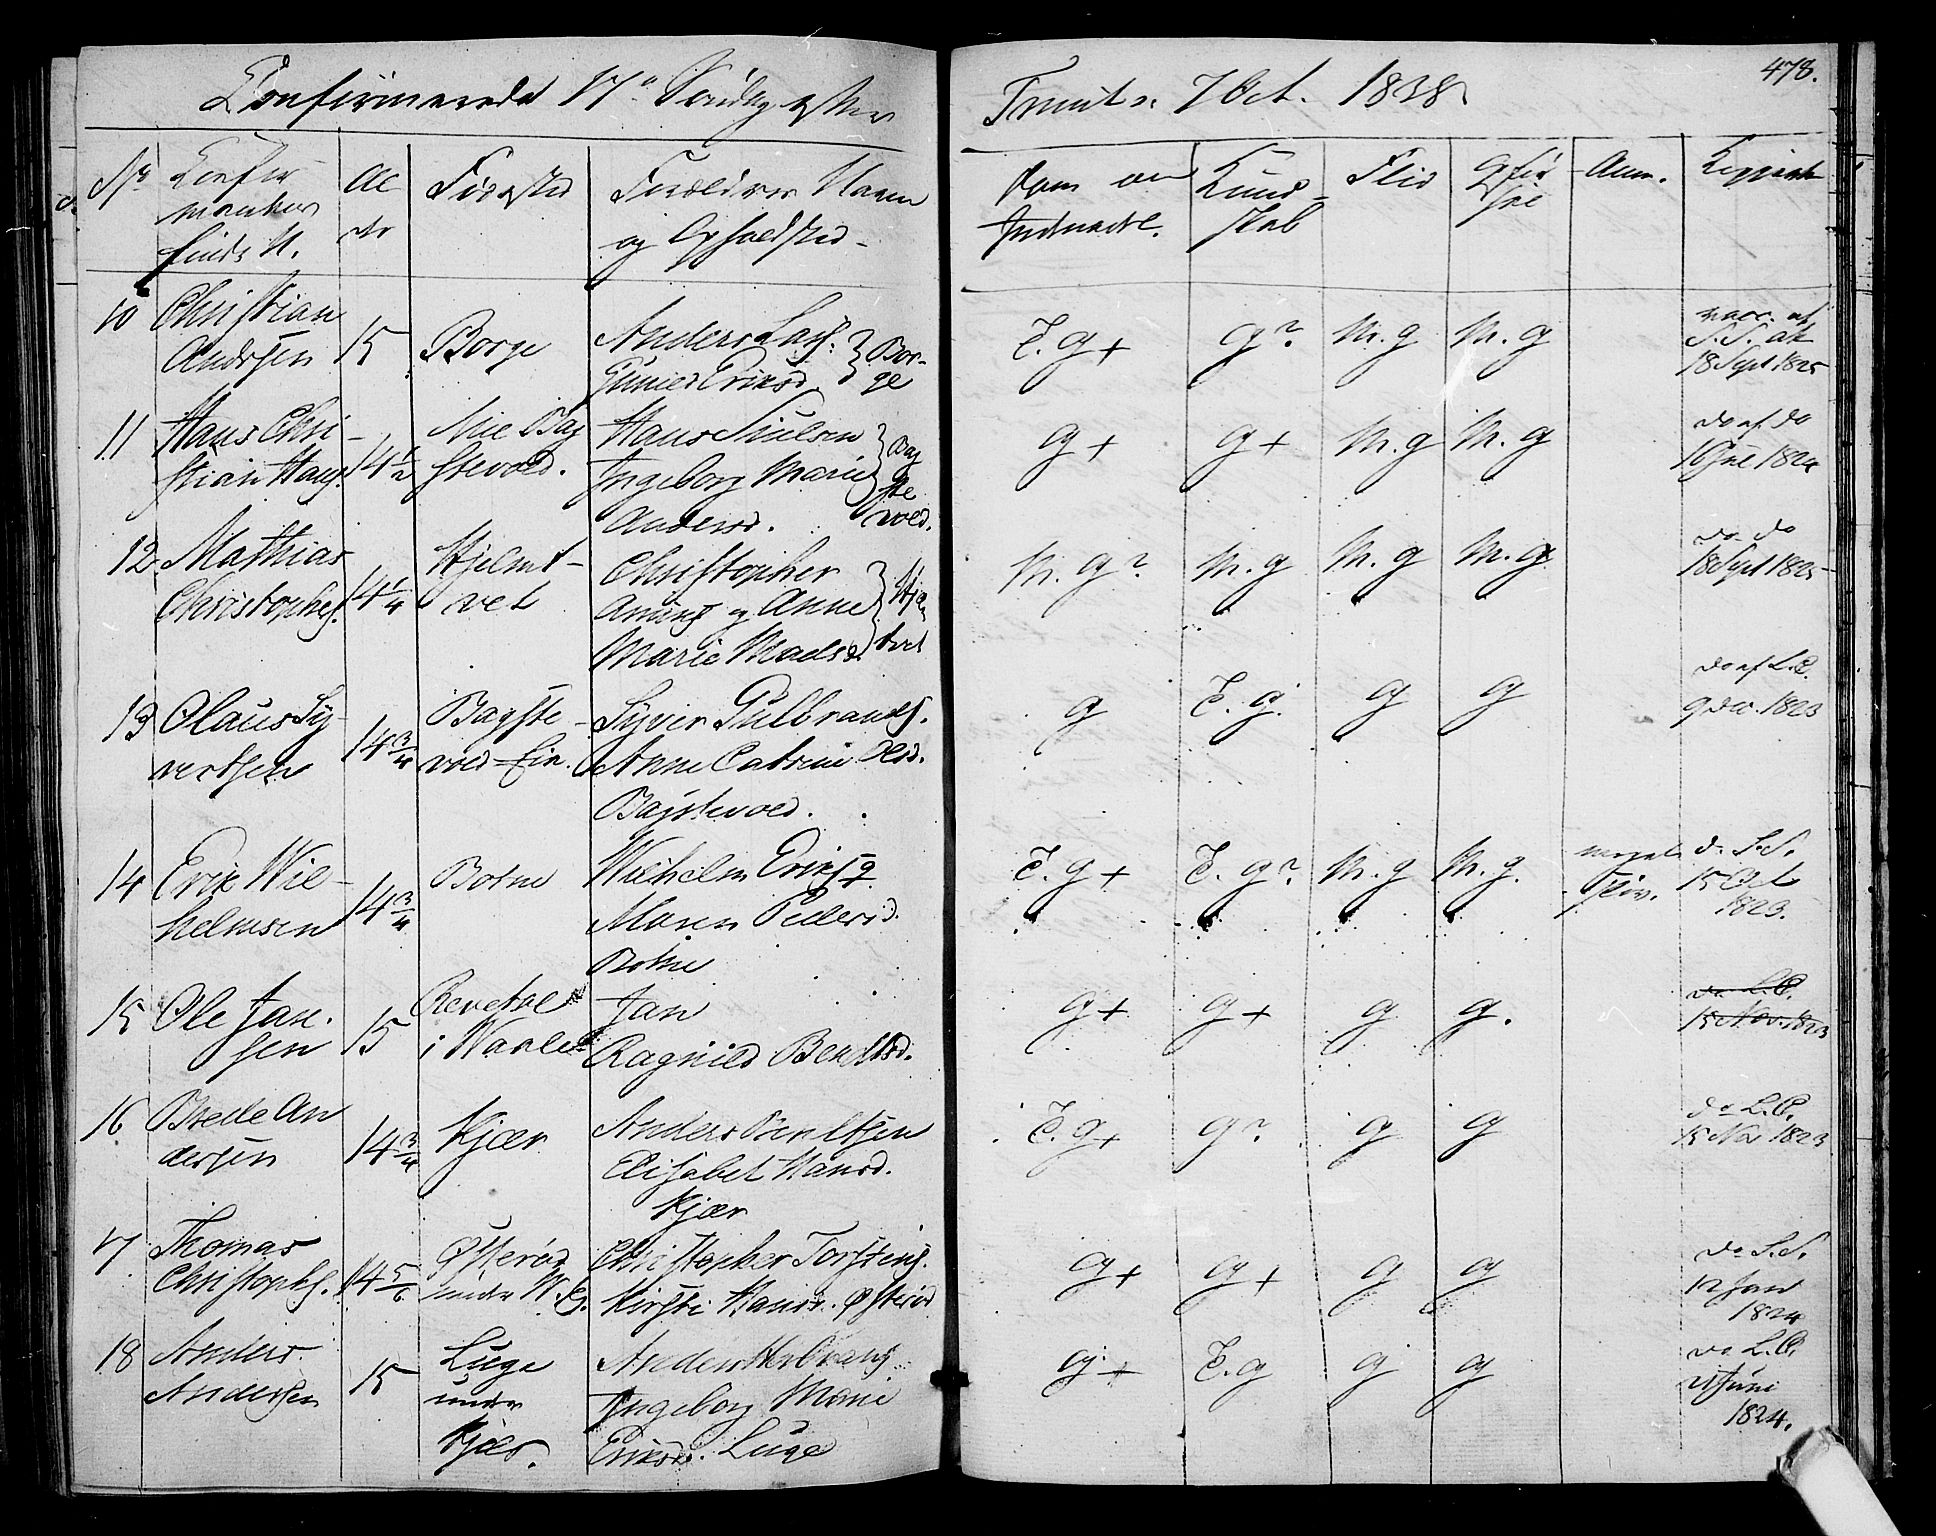 Confirmerede 17de Søndag efter Trinit: 7 Oct. 1838.
478.
No
Confir
mantens
fulde N.
Al
der
Fødested
Forældrenes Navn
og Opholdsted
Dom om
Kund
skab
Flid
Opfør
sel
Anm.
10
Christian
Andersen
15
Borge
Anders Lass.
Gunild Eriksd.
Bor-
ge
E. g +
g ?
M. g
M. g
vacc. af
S. S. att.
18 Sept 1825
11
Hans Chri-
stian Hans.
14 1/2
Nie Bag
stevold.
Hans Nielsen
Ingeborg Marie
Andersd.
Bag
ste
vold.
g +
g +
M. g
M. g
do af do
1824
12
Mathias
Christophs.
14 1/4
Hjelmt-
vet
Christopher
Amunds og Anne
Marie Madsd.
tvet
M. g ?
M. g
M. g
M. g
do do
18 Sept 1825
13
Olaus Sy-
vertsen
14 3/4
Bagste-
vold
Syver Gulbrands.
Anne Catrine Olsd.
Bagstevold.
g
E. g.
g
g
do af L. C.
9 dec. 1823
14
Erik Wil-
helmsen
14 3/4
Botne
Wilhelm Eriks.
Maren Pedersd.
Botne
E. g +
E. g ?
M. g
M. g.
do S. S.
15 Oct
1823.
15
Ole Jan-
sen
15
Revetal
i Waale
Jan
Ragnild Bentsd.
g +
g +
g
g.
do L. C.
15 Nov. 1823
16
Brede An
dersen
14 3/4
Kjær
Anders Bentsen
Elisabet Hansd.
Kjær
E. g +
g ?
g
g
do L. C.
15 Nov 1823
17
Thomas
Christophs.
14 5/6
Østerød
under W.
Christopher Torstens.
Kirsti Hansd. Østerød
g +
g +
g
g
do S. S.
12 Jan
1824
18
Anders
Andersen
15
Luge
under
Kjær.
Anders Herbrands.
Ingeborg Marie
Eriksd. Luge
g +
E. g
g
g
do L. C.
Juni
1824.